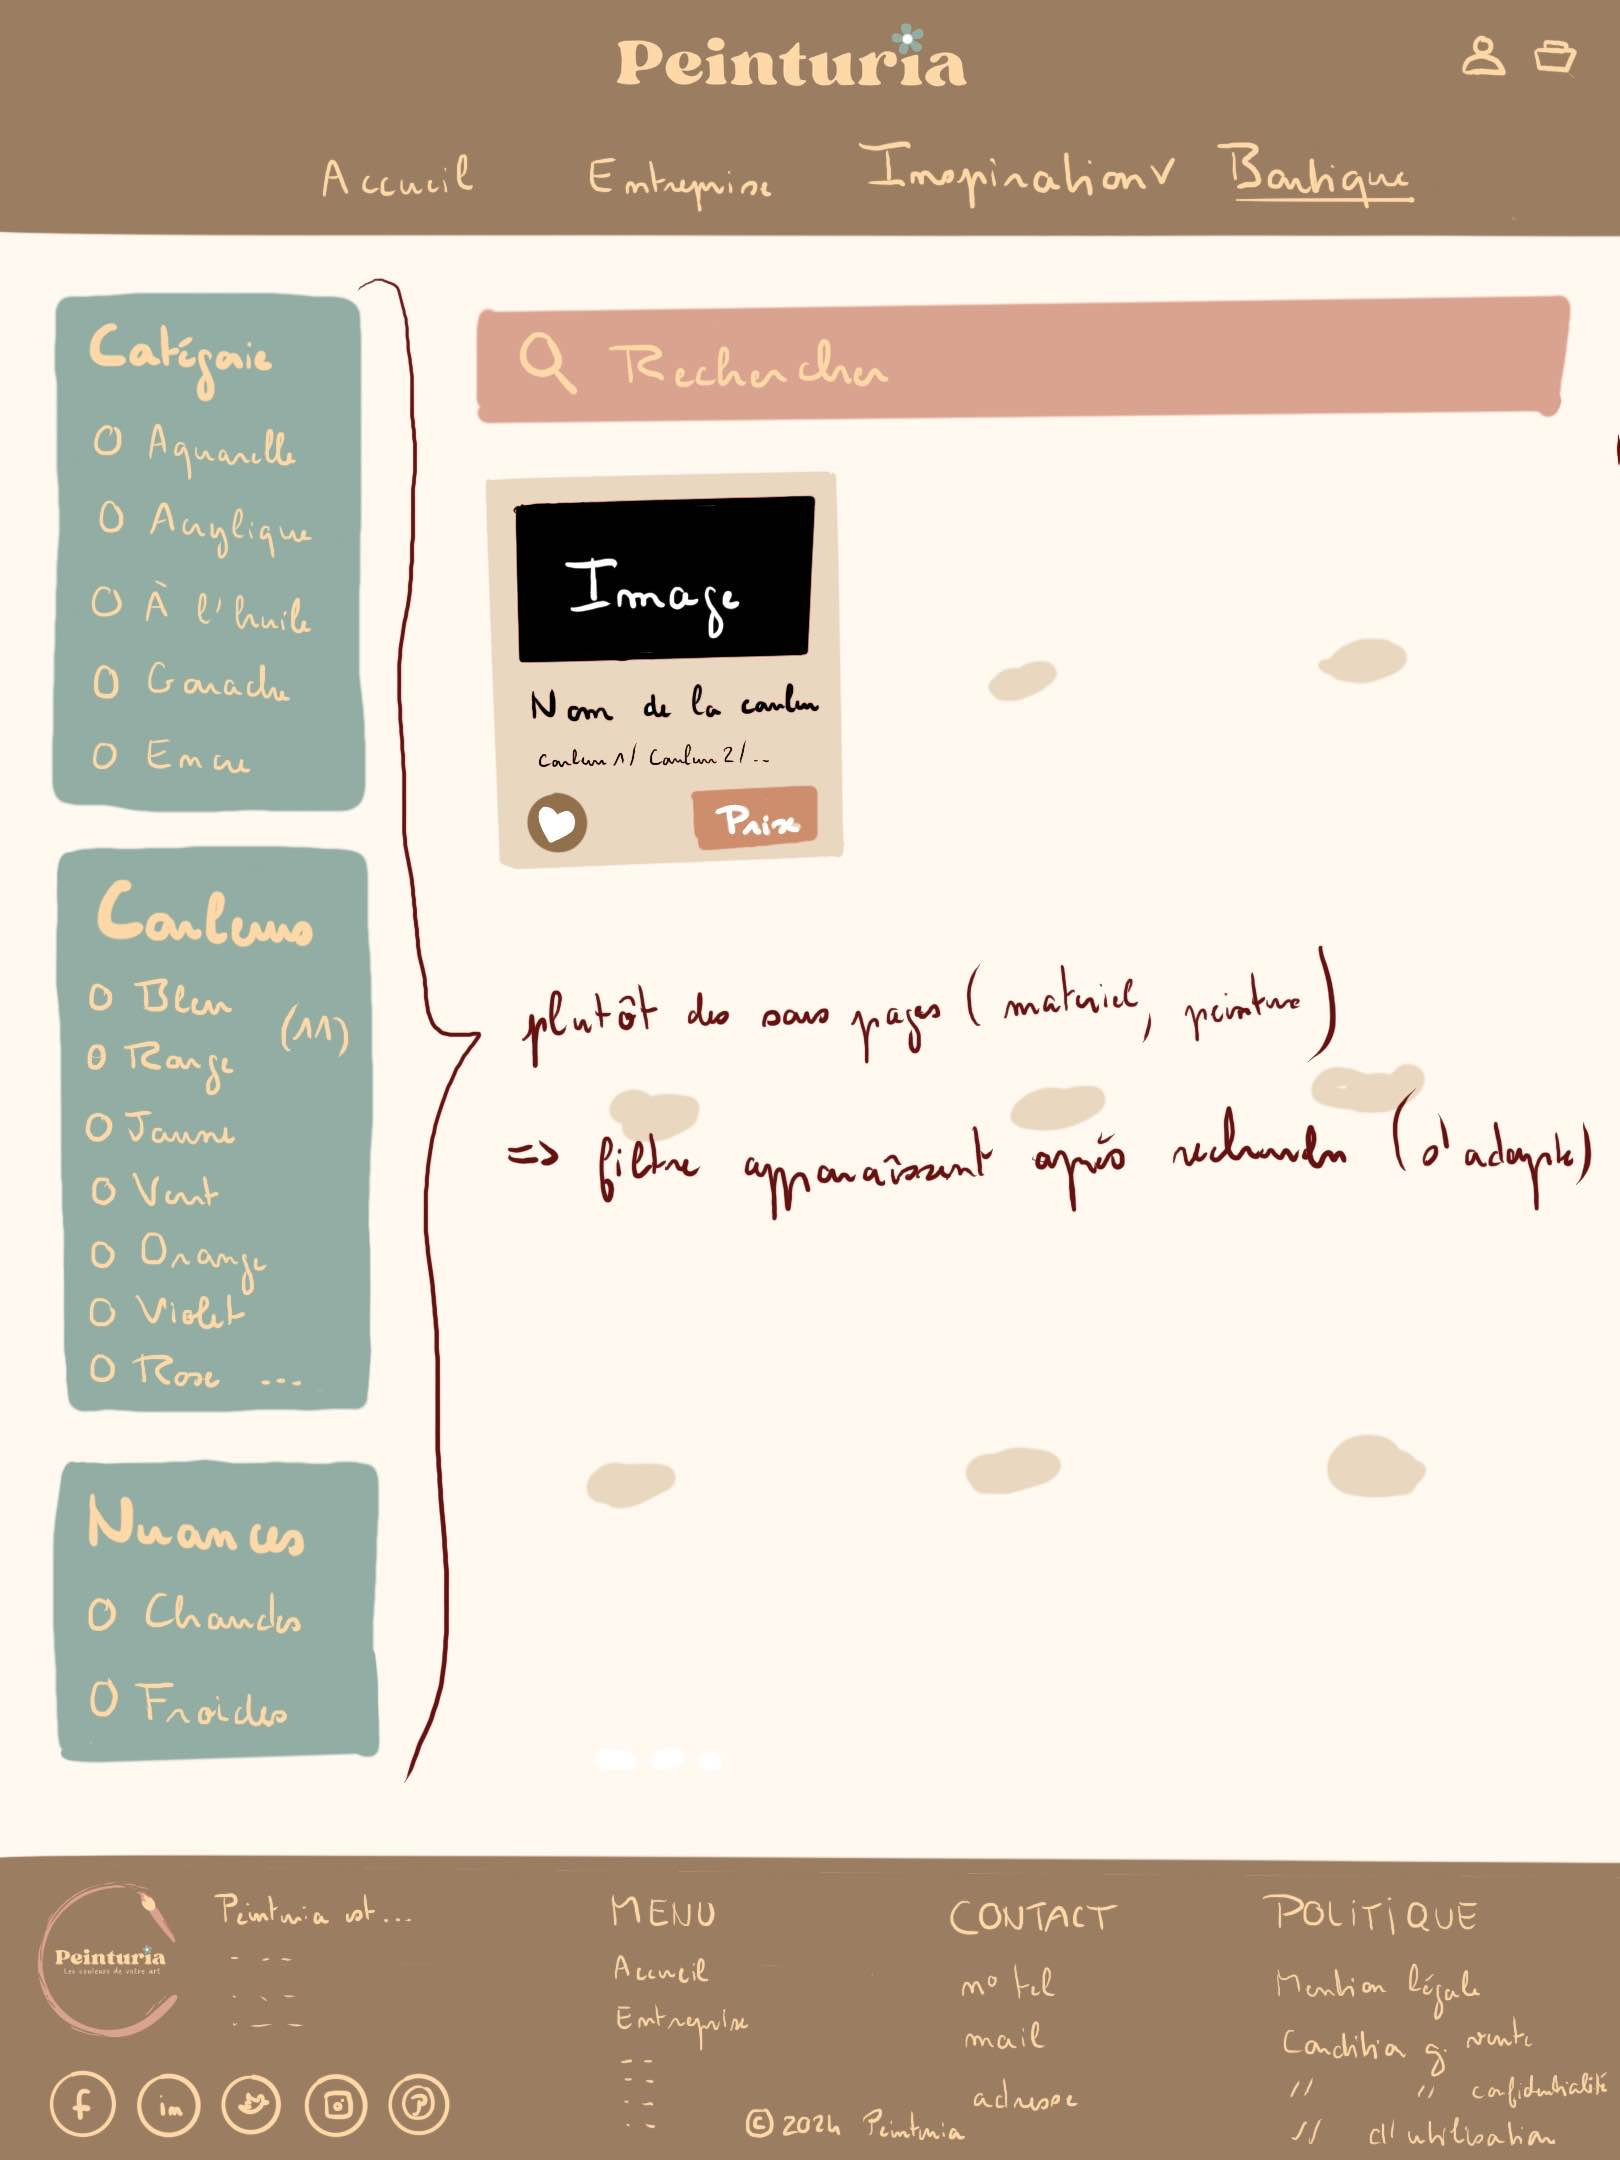 Peinturia
Accueil Entreprise Inspiration Boutique
Catégorie
Aquarelle
Acrylique
À l'huile
Gouache
Encre
Couleurs
Bleu
(11)
Rouge
Jaune
Vert
Orange
Violet
Rose ...
Nuances
Chaudes
Froides
Rechercher
Image
Nom de la couleur
Couleur 1/ Couleur 2/ ..
Prix
plutôt des sous pages (matériel, peinture)
=> filtre apparaîssent après recherche (s'adapte)
Peinturia
Les couleurs de votre art
Peinturia est...
MENU
Accueil
Entreprise
CONTACT
n° tel
mail
adresse
POLITIQUE
Mention légale
Condition g. vente
" " confidentialité
" d'utilisation
© 2024 Peinturia